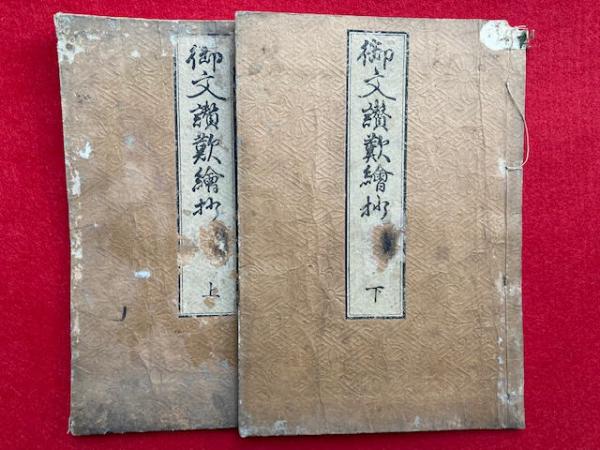 御文讃歎繪抄
下
御文讃歎繪抄
上